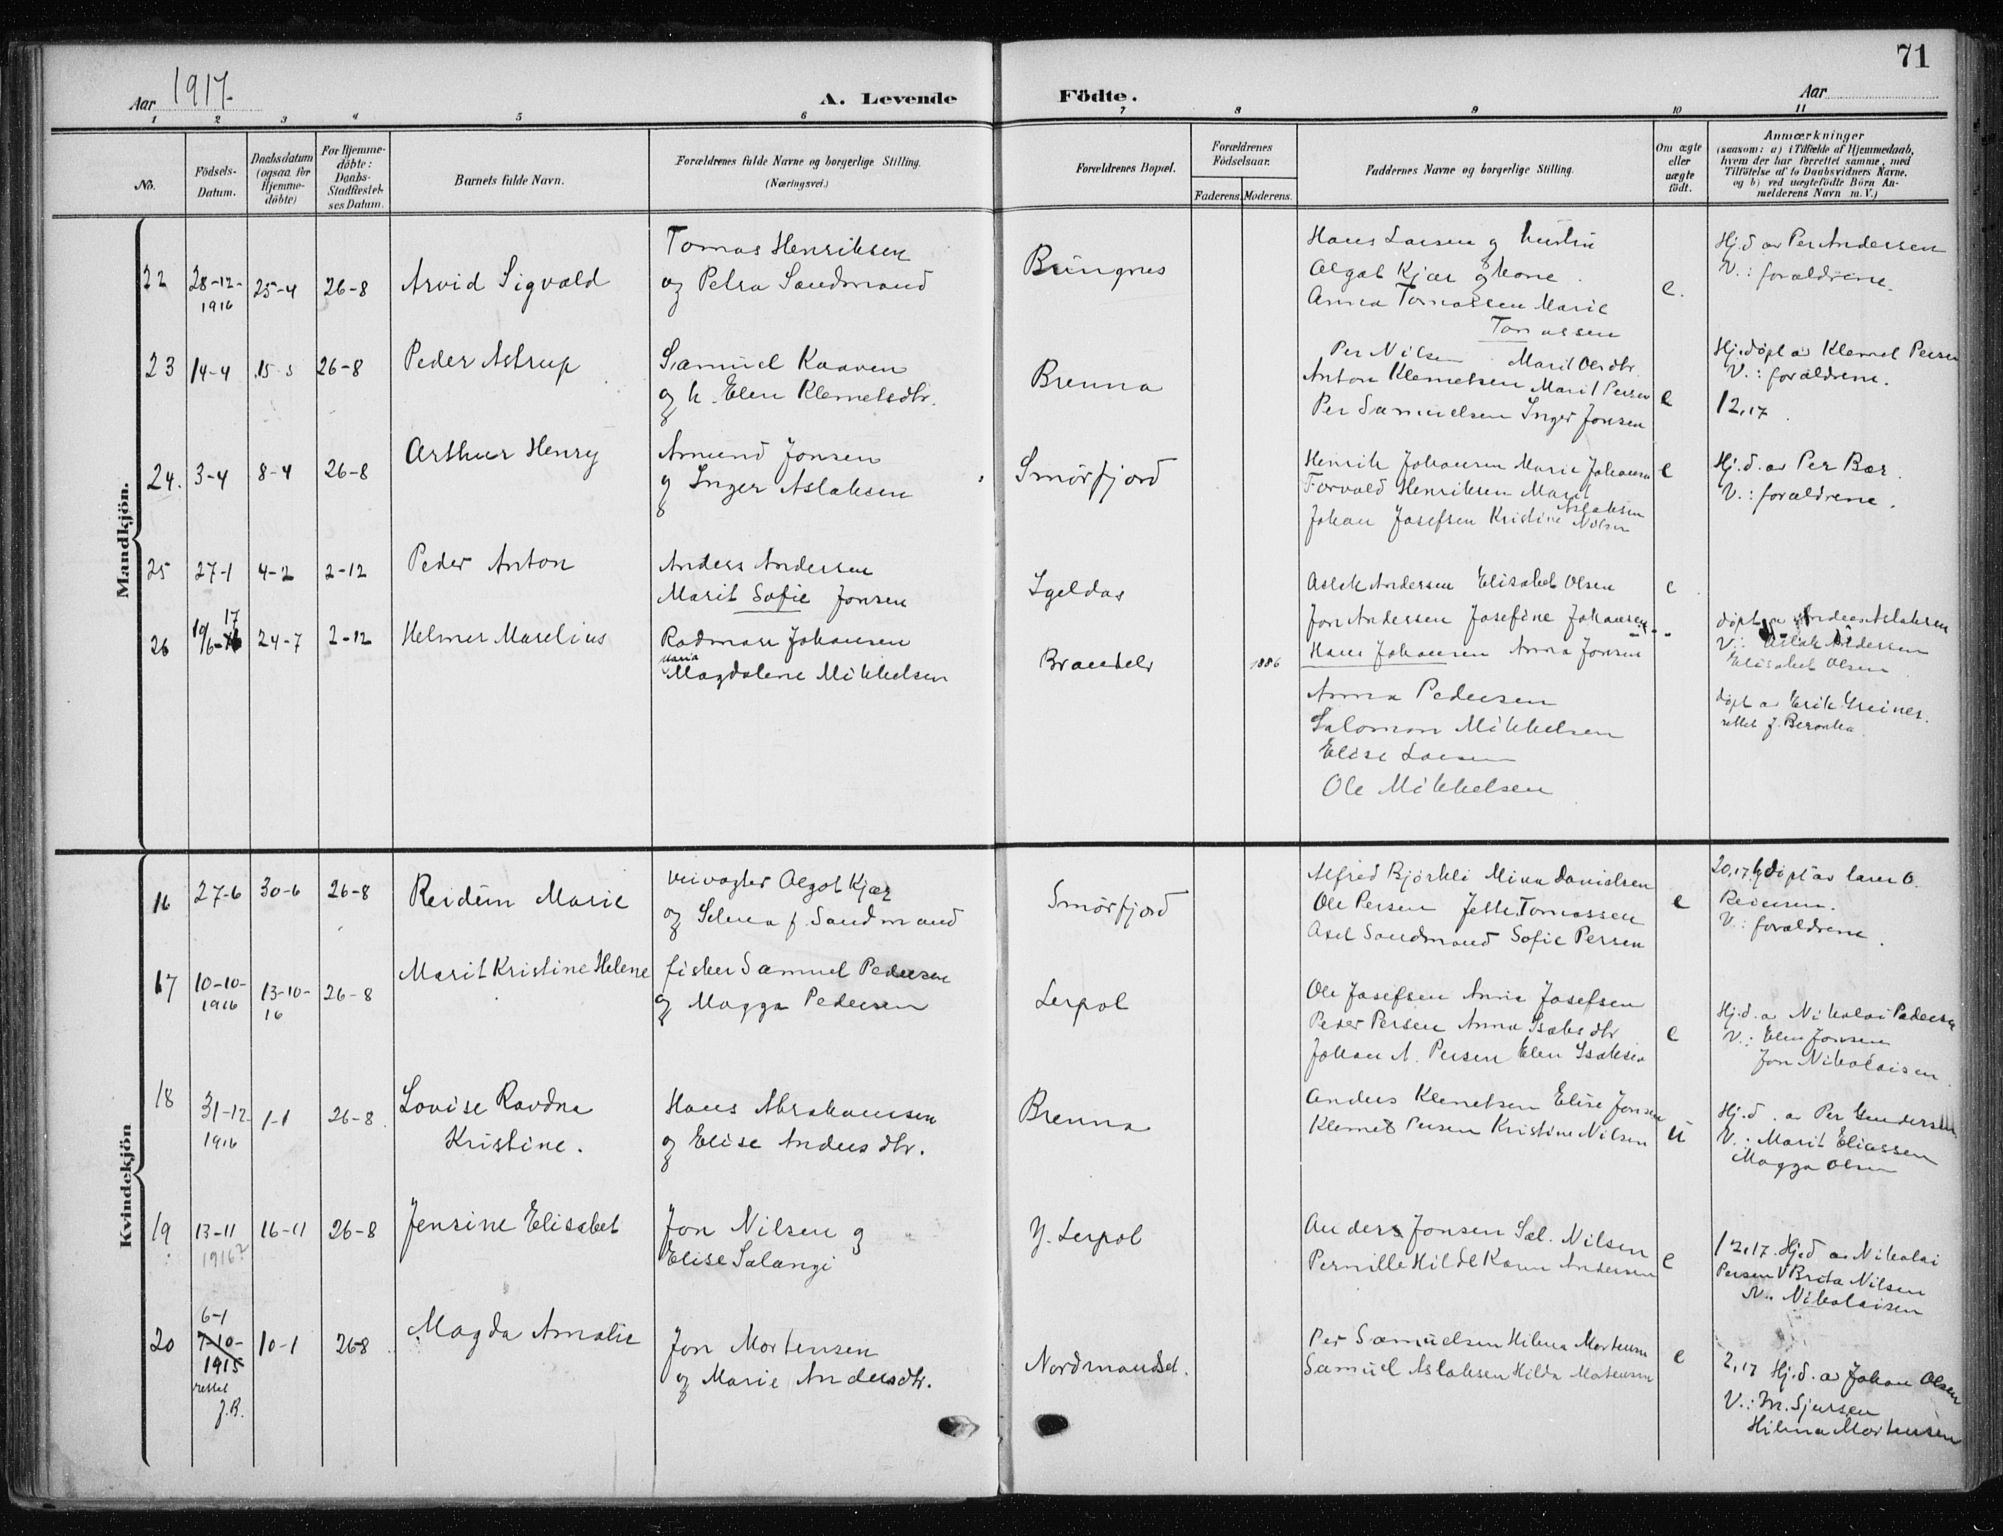 71
Aar 1917.
A. Levende Födte.
Aar
1 2 3 4 5 6 7 8 9 10 11
No.
Födsels-Datum.
Daabsdatum (ogsaa for Hjemme-döbte)
For Hjemme-döbte: Daabs-Stadfæstel-ses Datum.
Barnets fulde Navn.
Forældrenes fulde Navne og borgerlige Stilling.
(Næringsvei.)
Forældrenes Bopæl.
Forældrenes Födselsaar.
Faderens. Moderens.
Faddernes Navne og borgerlige Stilling.
Om ægte eller uægte födt.
Anmærkninger
(saasom: a) i Tilfælde af Hjemmedaab,
hvem der har forrettet samme, med
Tilföielse af to Daabsvidners Navne.
og b) ved uægtefödte Börn An-
melderens Navn m. V.)
Mandkjön.
22 28-12-1916 25-4 26-8 Arvid Sigvald
Tomas Henriksen
og Petra Sandmand
Bungnes
Hans Larsen g hustru
Algot Kjær og kone.
Anna Tomassen Marie
Tomassen
e.
Hj.d av Per Andersen
V.: forældrene.
23 14-4 15-5 26-8 Peder Astrup
Samuel Kaaven
og h. Elen Klemetsdtr.
Brenna
Per Nilsen Marit Olsdtr.
Anton Klemetsen Marit Persen
Per Samuelsen Inger Jonsen
e
Hj.döpt av Klemet Persen
V.: forældrene.
12,17.
24. 3-4 8-4 26-8 Arthur Henry
Amund Jonsen
og Inger Aslaksen
Smørfjord
Henrik Johansen Marie Johansen
Torvald Henriksen Marit
Aslaksen
Johan Josefsen Kristine Nilsen
e
Hj.d. av Per Bær.
V.: forældrene.
25 27-1 4-2 2-12 Peder Anton
Anders Andersen
Marit Sofie Jonsen
Igeldas
Aslak Andersen Elisabet Olsen
Jon Andersen Josefine Johansen
Hans Johansen Anna Jonsen
e
døpt av Anders Aslaksen
V.: Aslak Andersen
Elisabet Olsen
26 19/6-17 24-7 2-12 Helmer Marelius
Rodmar Johansen
Maria
Magdalene Mikkelsen
Brandelv
1886
Anna Pedersen
Salomon Mikkelsen
Elise Larsen
Ole Mikkelsen
døpt av Erik Greiner.
rettet J. Beronka
Kvindekjön
16 27-6 30-6 26-8 Reidun Marie
veivogter Algot Kjær
og Selma f. Sandmand
Smørfjord
Alfred Björkli Mina Danielsen
Ole Persen Jette Tomassen
Axel Sandmand Sofie Persen
e
20,17 hj.döpt av lærer O.
Reiersen.
V: forældrene.
17 10-10-1916 13-10-16 26-8 Marit Kristine Helene
fisker Samuel Pedersen
og Magga Pedersen
Lerpol
Ole Josefsen Anna Josefsen
Peder Persen Anna Isaksdtr
Johan A. Persen Elen Isaksen
e
Hj.d. a Nikolai Pedersen
V.: Elen Jonsen
Jon Nikolaisen.
18 31-12 1916 1-1 26-8 Lovise Ravdna
Kristine.
Hans Abrahamsen
og Elise Andersdtr.
Brenna
Anders Klemetsen Elise Jonsen
Klemet Persen Kristine Nilsen
u
Hj.d. a Per Gundersen
V.: Marit Eliassen
Magga Olsen
19 13-11 1916? 16-11 26-8 Jensine Elisabet
Jon Nilsen og
Elise Salangi
Y. Lerpol
Anders Jonsen Sal. Nilsen
Pernille Hildl Karen Andersen
e
12,17. Hj.d av Nikolai
Persen V Brita Nilsen
N. Nikolaisen
20 6-1 7-10-1915 rettet J.B. 10-1 26-8 Magda Amalie
Jon Mortensen
og Marie Andersdtr.
Nordmandset.
Per Samuelsen Hilma Mortensen
Samuel Aslaksen Hilda Mortensen
e
2,17 Hj.d. av Johan Olsen
V.: M. Sjursen
Hilma Mortensen